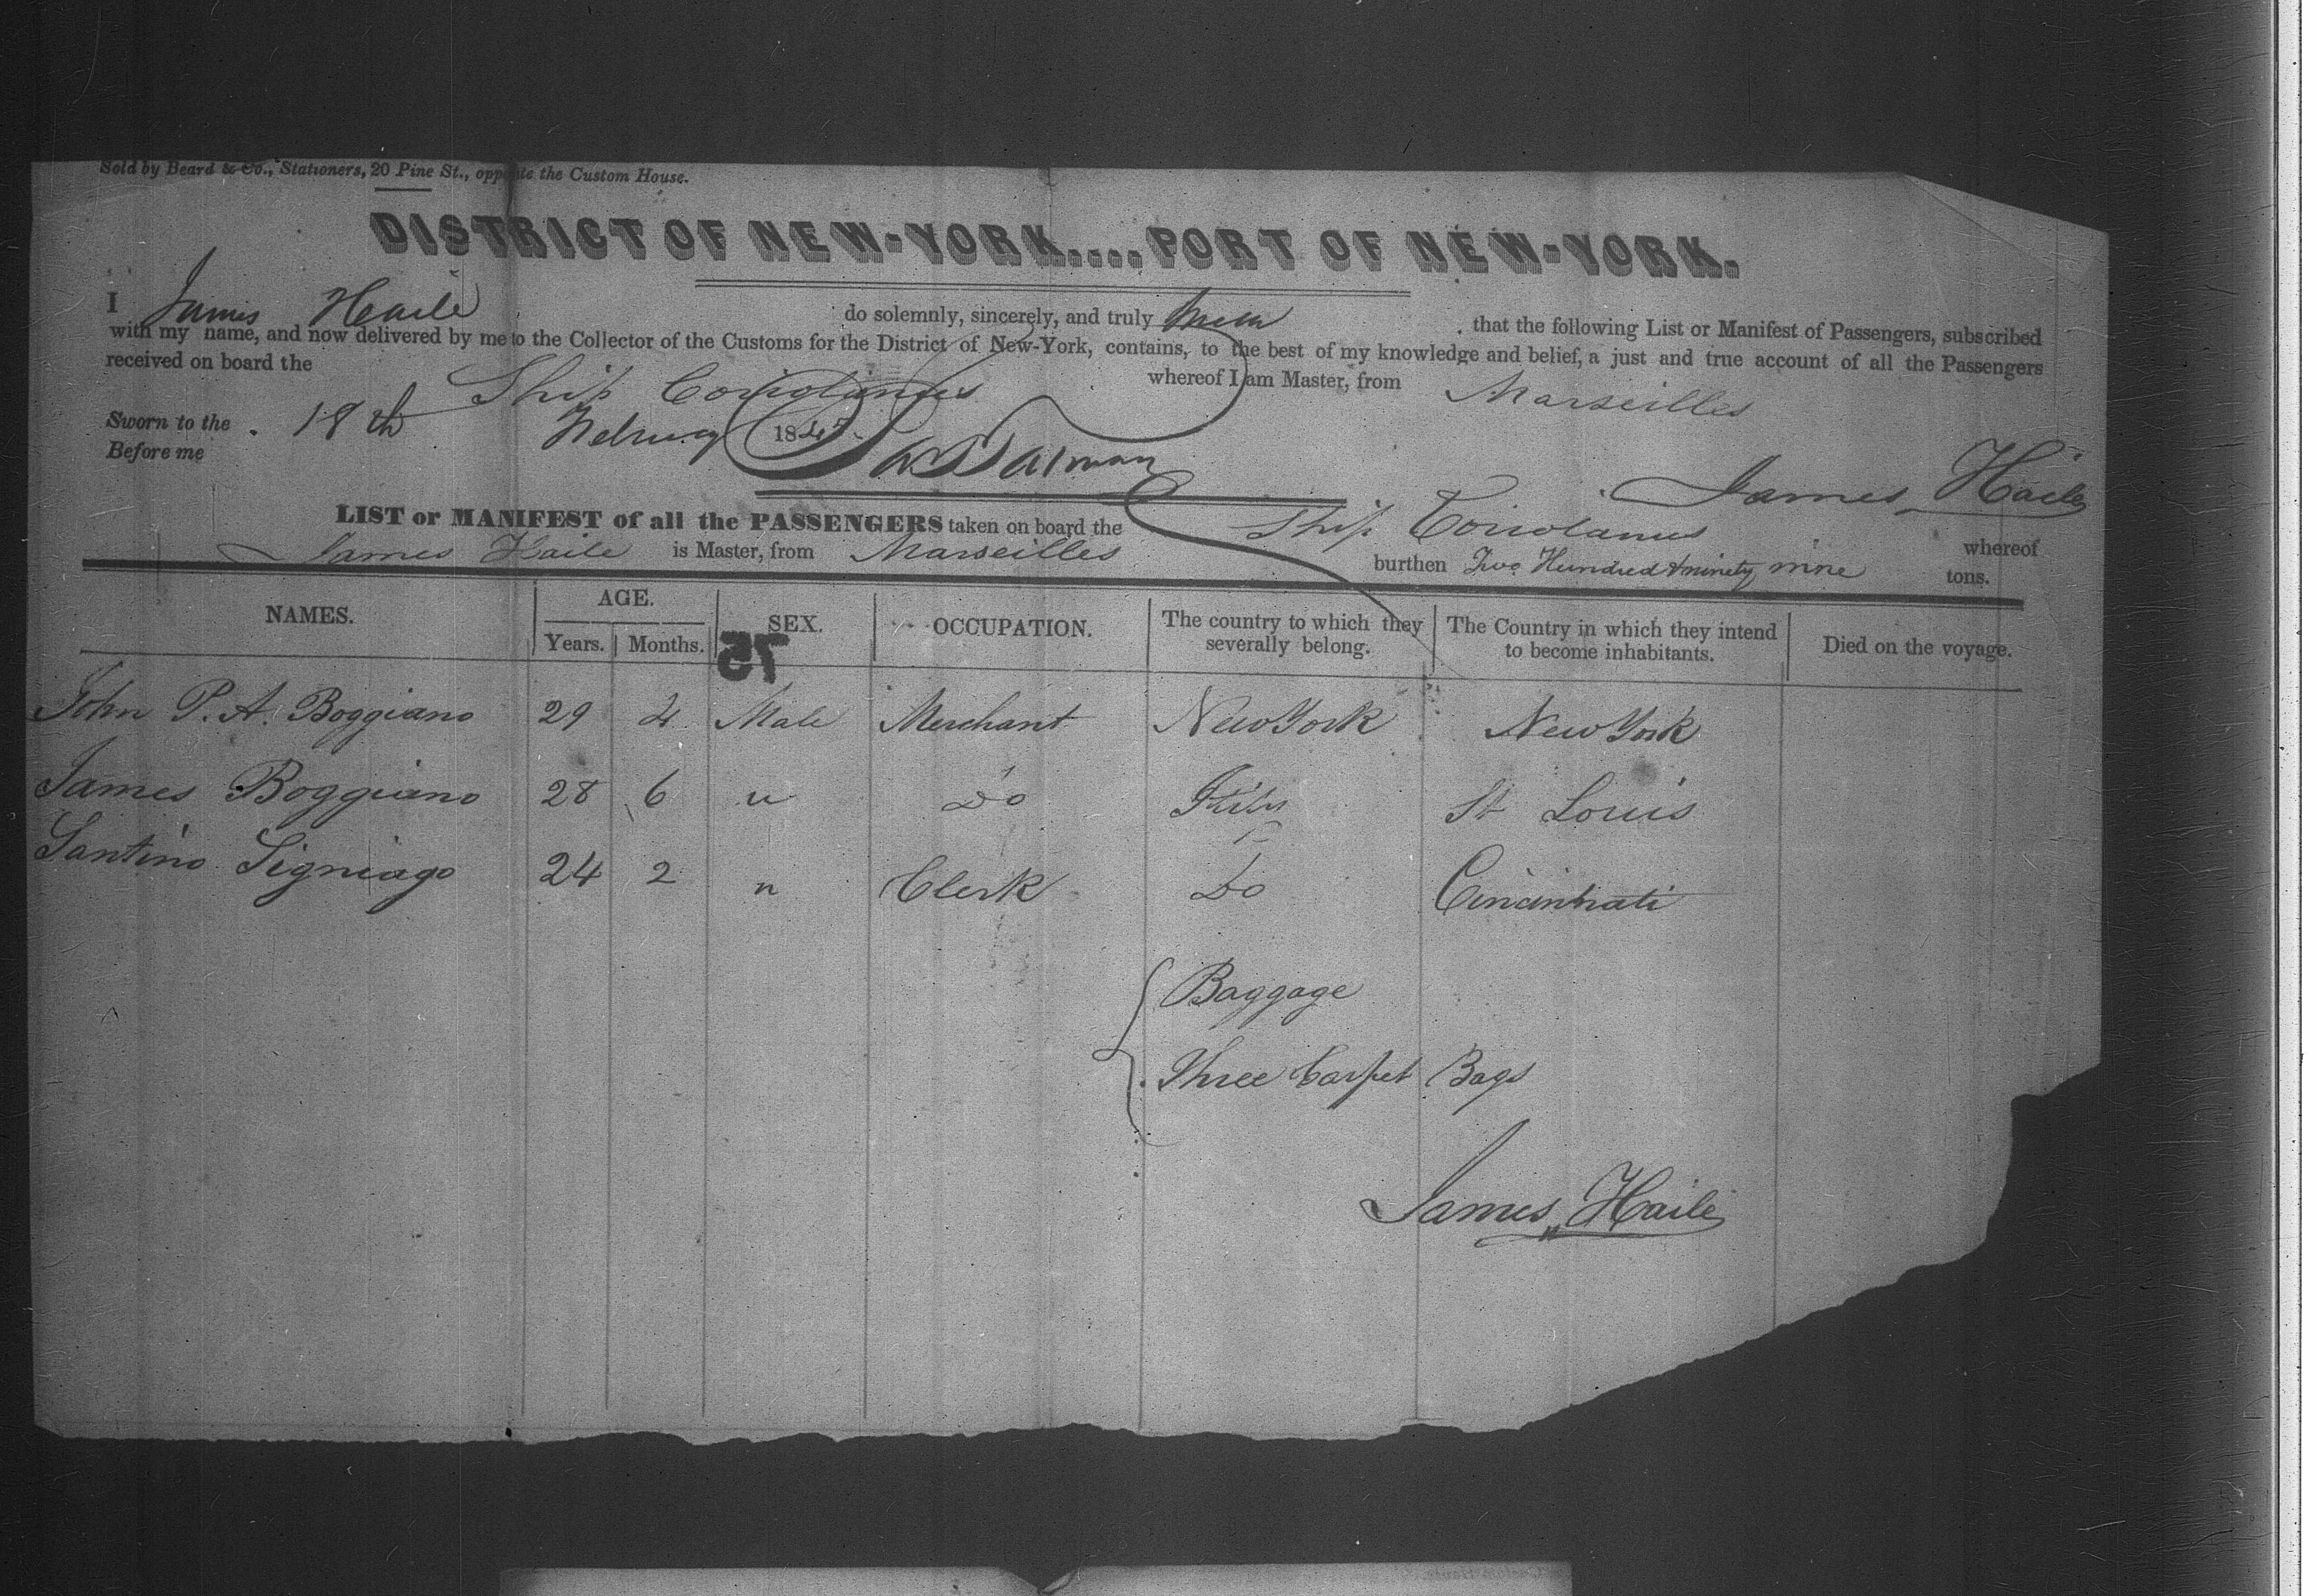 Sold by Beard & Co., Stationers, 20 Pine St., opposite the Custom House.
DISTRICT OF NEW-YORK....PORT OF NEW-YORK.
I James Haile do solemnly, sincerely, and truly swear that the following List or Manifest of Passengers, subscribed
with my name, and now delivered by me to the Collector of the Customs for the District of New-York, contains, to the best of my knowledge and belief, a just and true account of all the Passengers
received on board the Ship Coriolanus whereof I am Master, from Marseilles
Sworn to the 18th 184
Before me
James Haile
LIST or MANIFEST of all the PASSENGERS taken on board the Ship Coriolanus whereof
James Haile is Master, from Marseilles burthen Two Hundred & ninety nine tons.
NAMES. AGE. SEX. OCCUPATION. The country to which they severally belong. The Country in which they intend to become inhabitants. Died on the voyage.
Years. Months.
75
John P. A. Boggiano 29 4 Male Merchant New York New York
James Boggiano 28 6 " Do St Louis
Santino Signiago 24 2 " Clerk Do Cincinnati
Baggage
Three Carpet Bags
James Haile